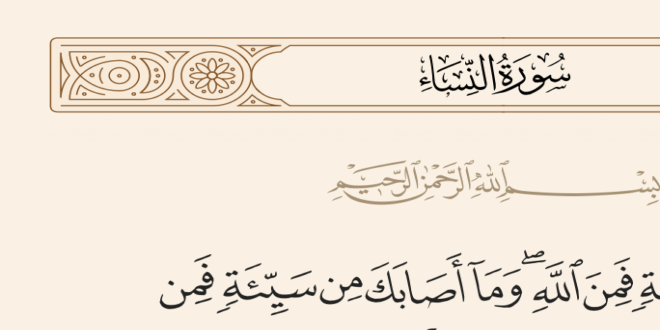 سُورَةُ النِّسَاءِ
بِسْمِ ٱللَّهِ ٱلرَّحْمَٰنِ ٱلرَّحِيمِ
فَمِنَ ٱللَّهِ ۖ وَمَآ أَصَابَكَ مِن سَيِّئَةٍ فَمِن